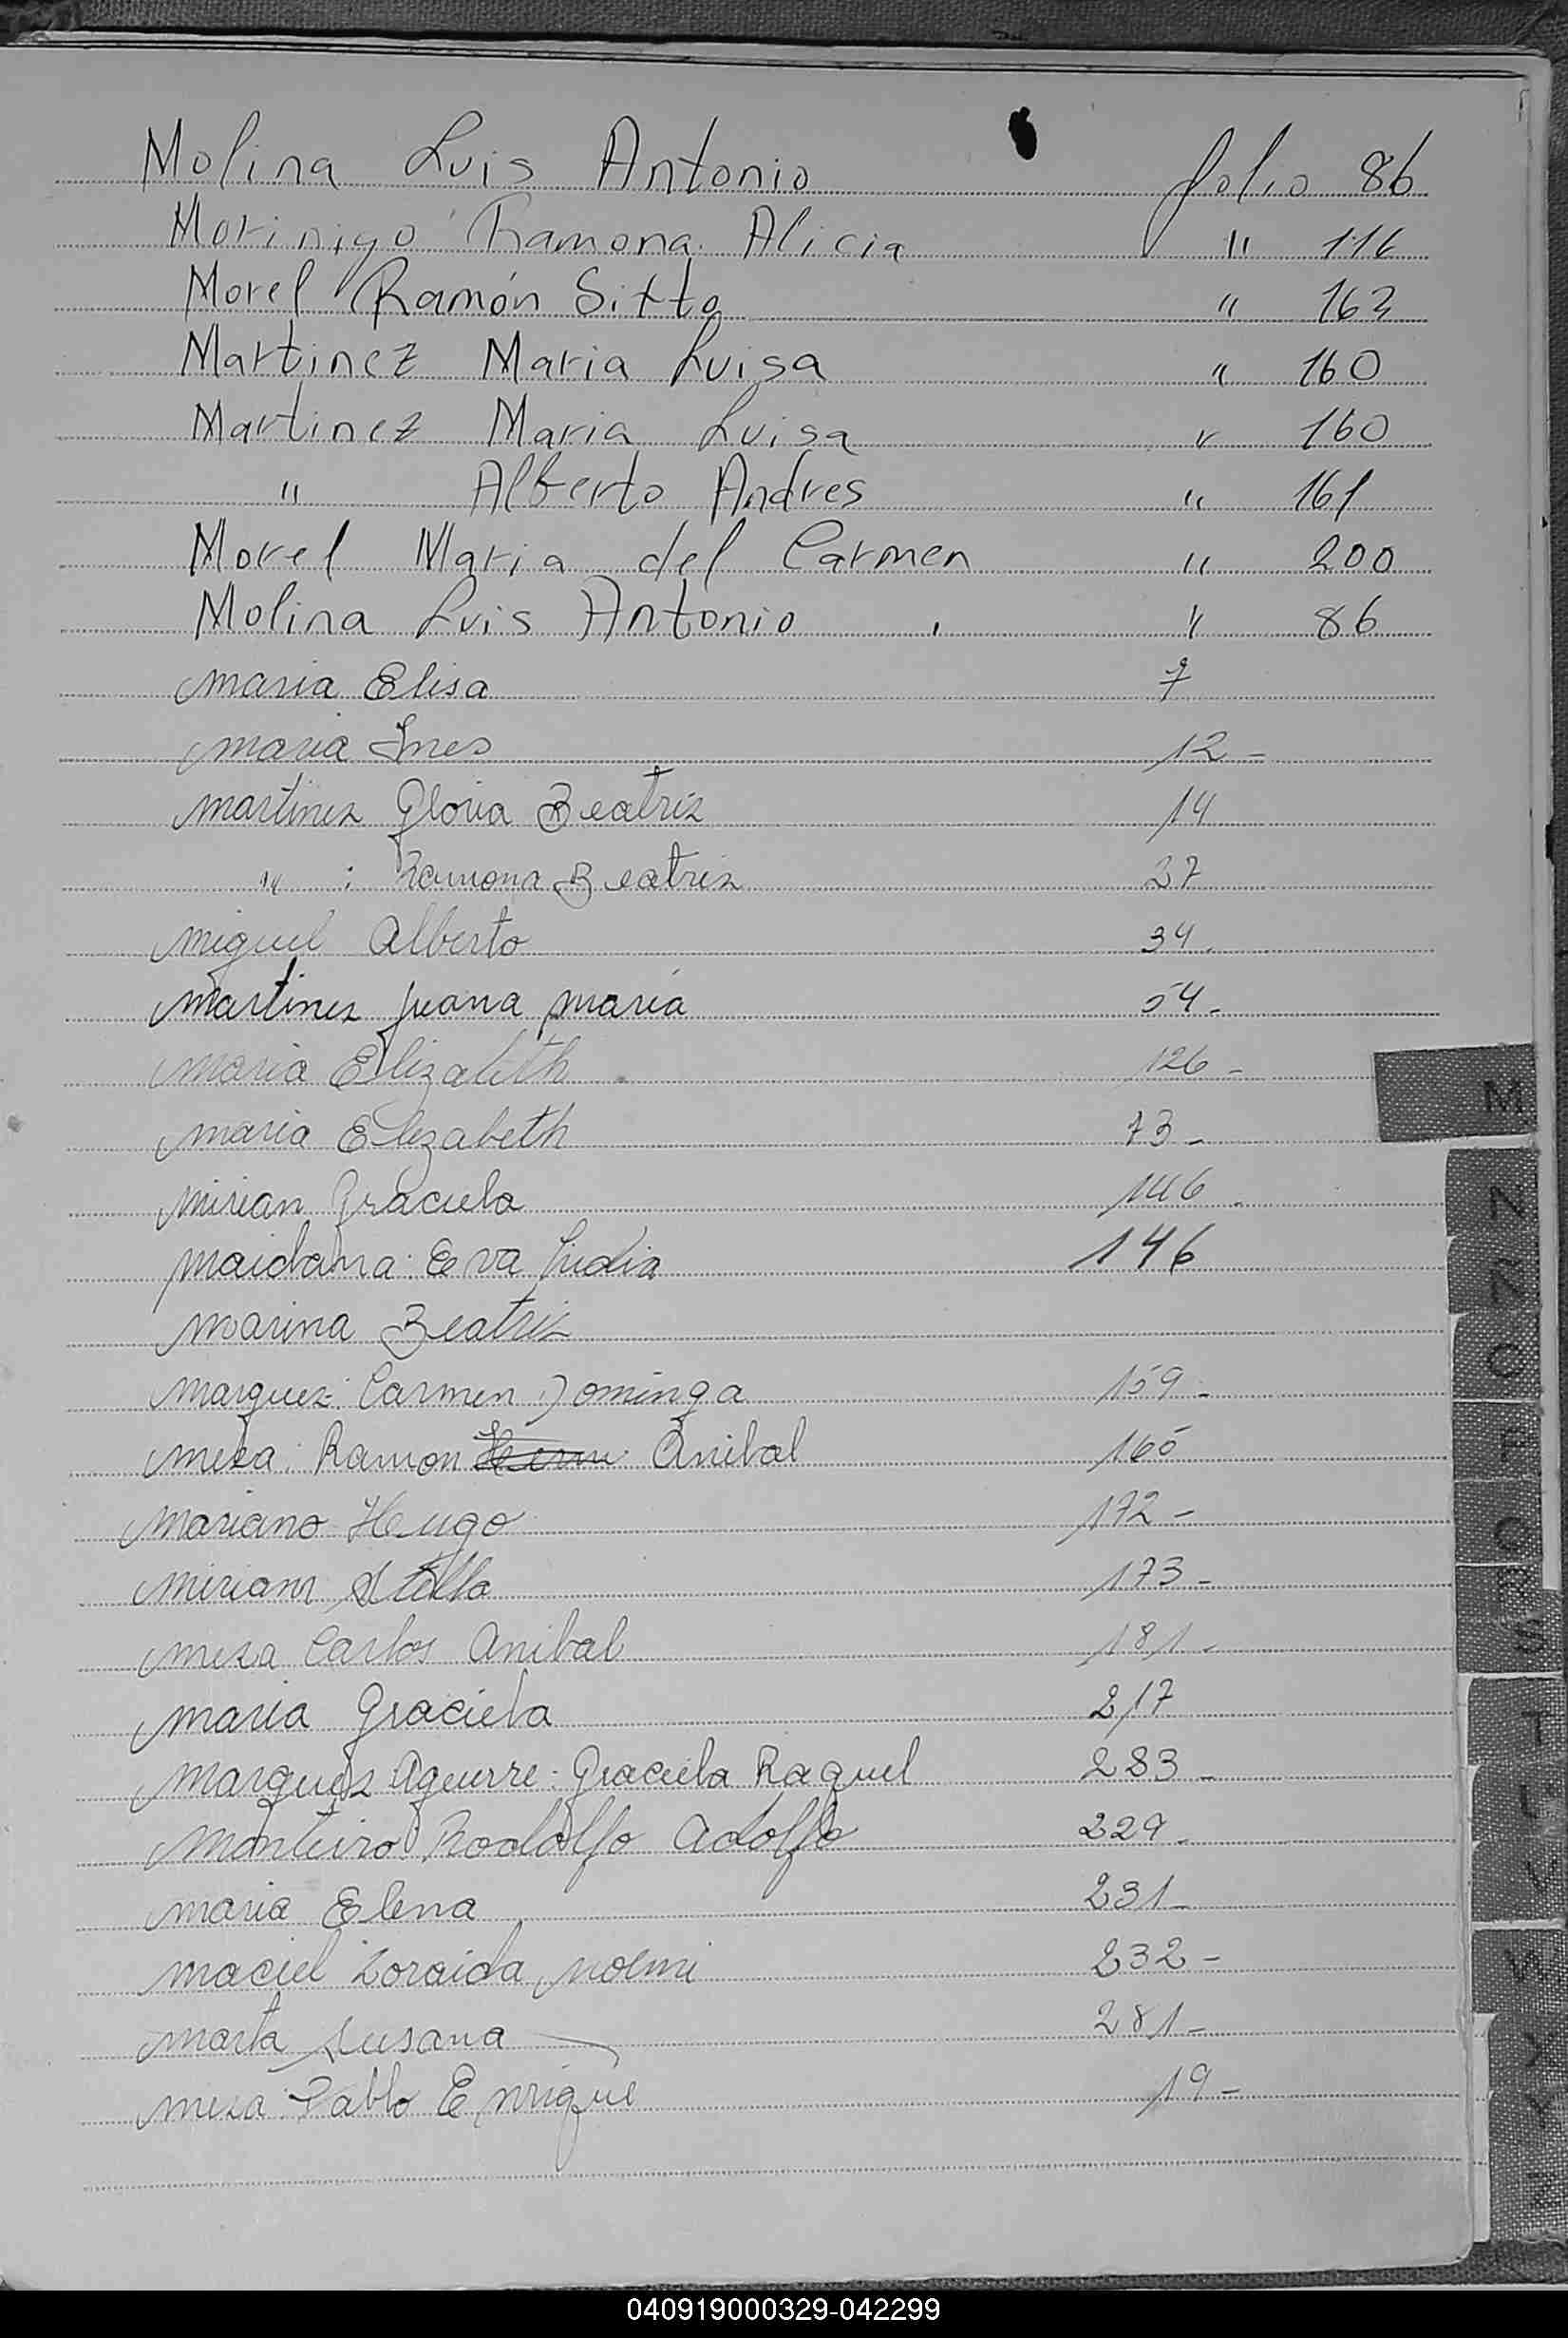 Molina Luis Antonio folio 86
Morinigo Ramona Alicia " 116
Morel Ramón Sixto " 162
Martinez Maria Luisa " 160
Martinez Maria Luisa " 160
" Alberto Andres " 161
Morel Maria del Carmen " 200
Molina Luis Antonio " 86
Maria Elisa 7
Maria Ines 12-
Martinez Gloria Beatriz 14
" : Ramona Beatriz 27
Miguel Alberto 34.
Martinez Juana Maria 54-
Maria Elizabeth 126-
Maria Elizabeth 73-
Mirian Graciela 146-
Maidana: Eva Lidia 146
Marina Beatriz
Marquez: Carmen Dominga 159-
Meza: Ramon Anibal 165
Mariano Hugo 172-
Miriam Stella 173-
Meza Carlos Anibal 181-
Maria Graciela 217
Marquez Aguirre: Graciela Raquel 283-
Monteiro Rodolfo Adolfo 229-
Maria Elena 231-
Maciel Zoraida Noemi 232-
Marta Susana 281-
Meza Pablo Enrique 19-
M
N
Ñ
O
P
Q
R
S
T
U
V
W
X
Y
Z
040919000329-042299